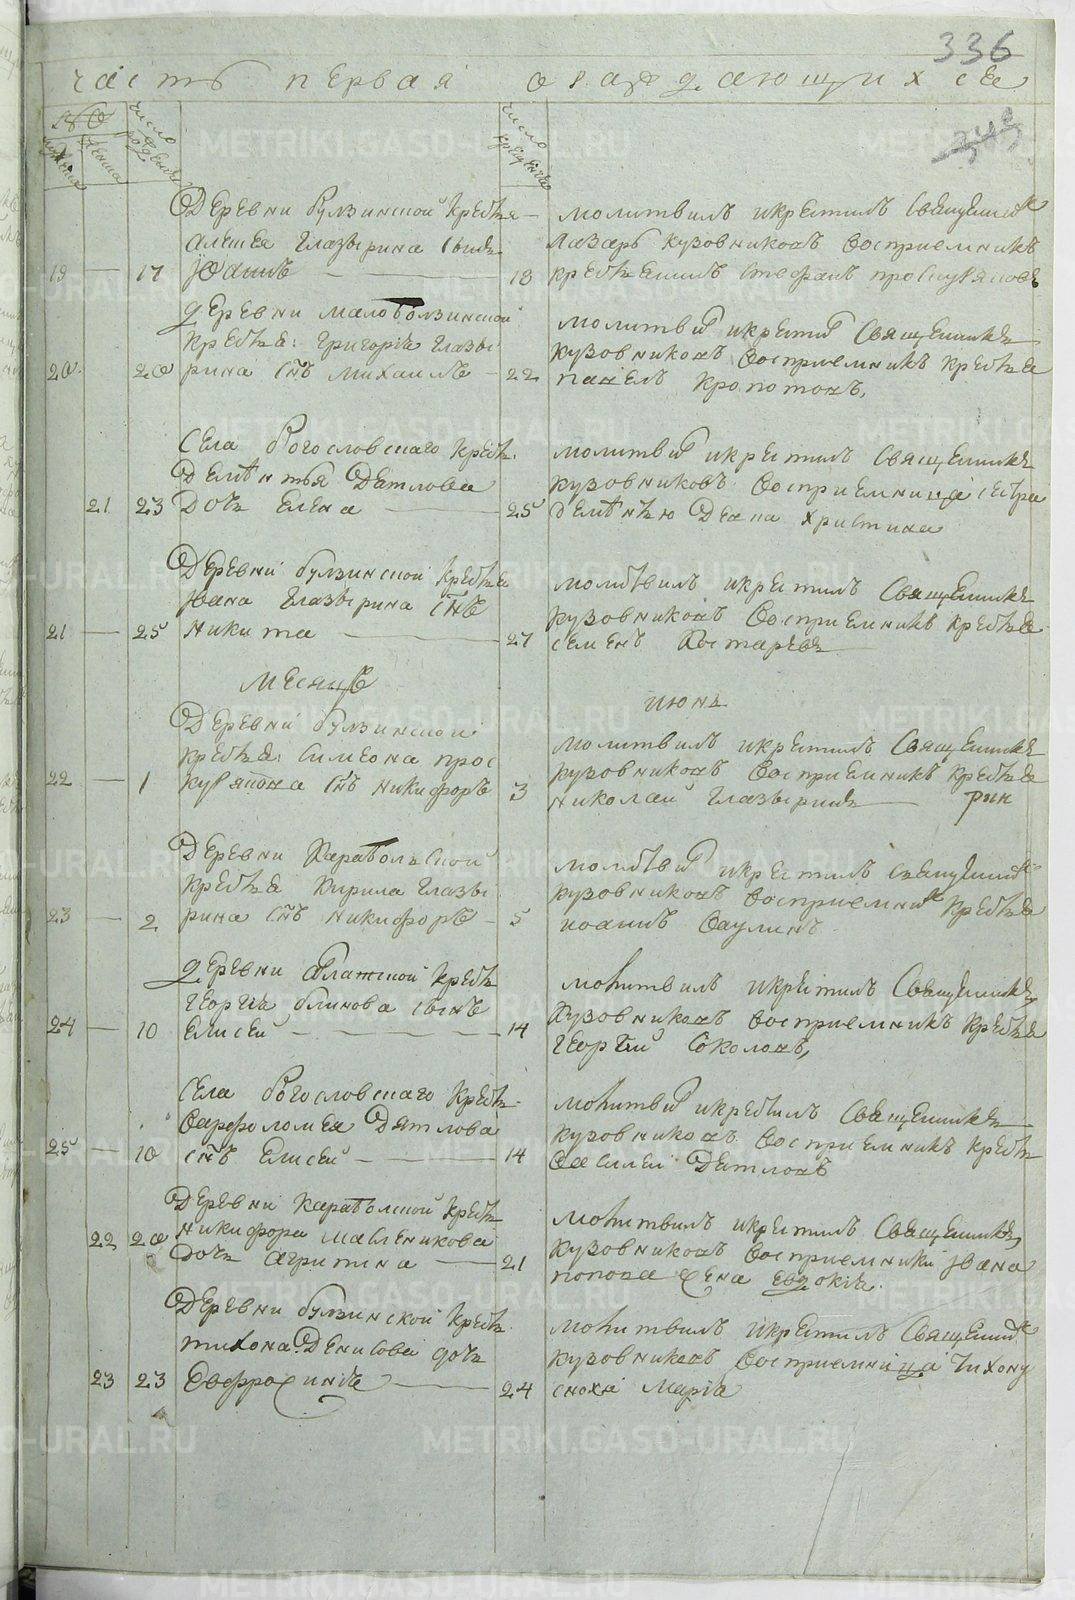 336
часть первая о раждающихся
343
число рожденiя
число крещенiя
19 17 Деревни булзинской крестьн
Алексея Глазырина сынъ
Iоаннъ
18 молитвилъ икрестилъ священникъ
Лазарь кузовниковъ восприемникъ
крестьянинъ Стефанъ проскуряковъ
20 20 деревни малоболзинской
крестьна: григорiя глазы
рина снъ михаилъ
22 молитвил икрестил священникъ
кузовниковъ восприемникъ крестьна
павелъ кропотовъ,
21 23 села богословскаго крестьн.
Дементья Дятлова
дочь елена
25 молитвил икрестилъ священникъ
кузовниковъ восприемница сестра
христина
21 25 Деревни булзинской крестьна
Iвана глазырина снъ
никита
27 молитвилъ икрестилъ священникъ
кузовниковъ восприемникъ крестьна
семенъ Костаревъ
месяцъ iюнь
22 1 Деревни булзинской
крестьна: симеона прос
курякова снъ никифоръ
3 молитвилъ икрестилъ священникъ
кузовниковъ восприемникъ крестьна
николай глазыринъ рин
23 2 Деревни Карабольской
крестьна Кирила глазы
рина снъ никифоръ
5 молитвил икрестилъ священникъ
кузовниковъ восприемник крестьна
иоаннъ ваулинъ
24 10 деревни крестьн
георгiя блинова сынъ
елисей
14 молитвилъ икрестилъ священникъ
кузовниковъ восприемникъ крестьна
георгiй соколовъ,
25 10 села богословскаго крестьн
варфоломея Дятлова
снъ елисей
14 молитвил икрестилъ священникъ
кузовниковъ восприемникъ крестьн
василей Дятловъ
22 20 Деревни карабольской крестьн
никифора масленикова
дочь агрипина
21 молитвилъ икрестилъ священникъ
кузовниковъ восприемники Iвана
попова жена евдокiя.
23 23 Деревни булзинской крестьн
тихона Денисова дочь
Евфросинiя
24 молитвилъ икрестилъ священник
кузовниковъ восприемница тихону
сноха марiя
METRIKI.GASO-URAL.RU